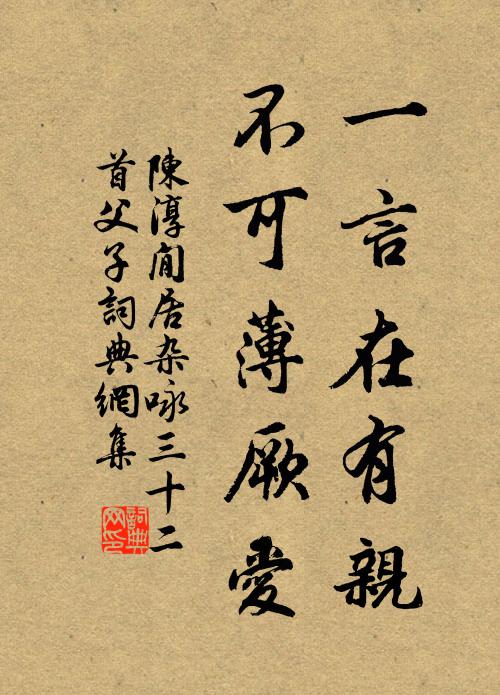 一言在有親
不可薄厥愛
陳淳閒居杂咏三十二
首父子詞典網集
詞典
网印